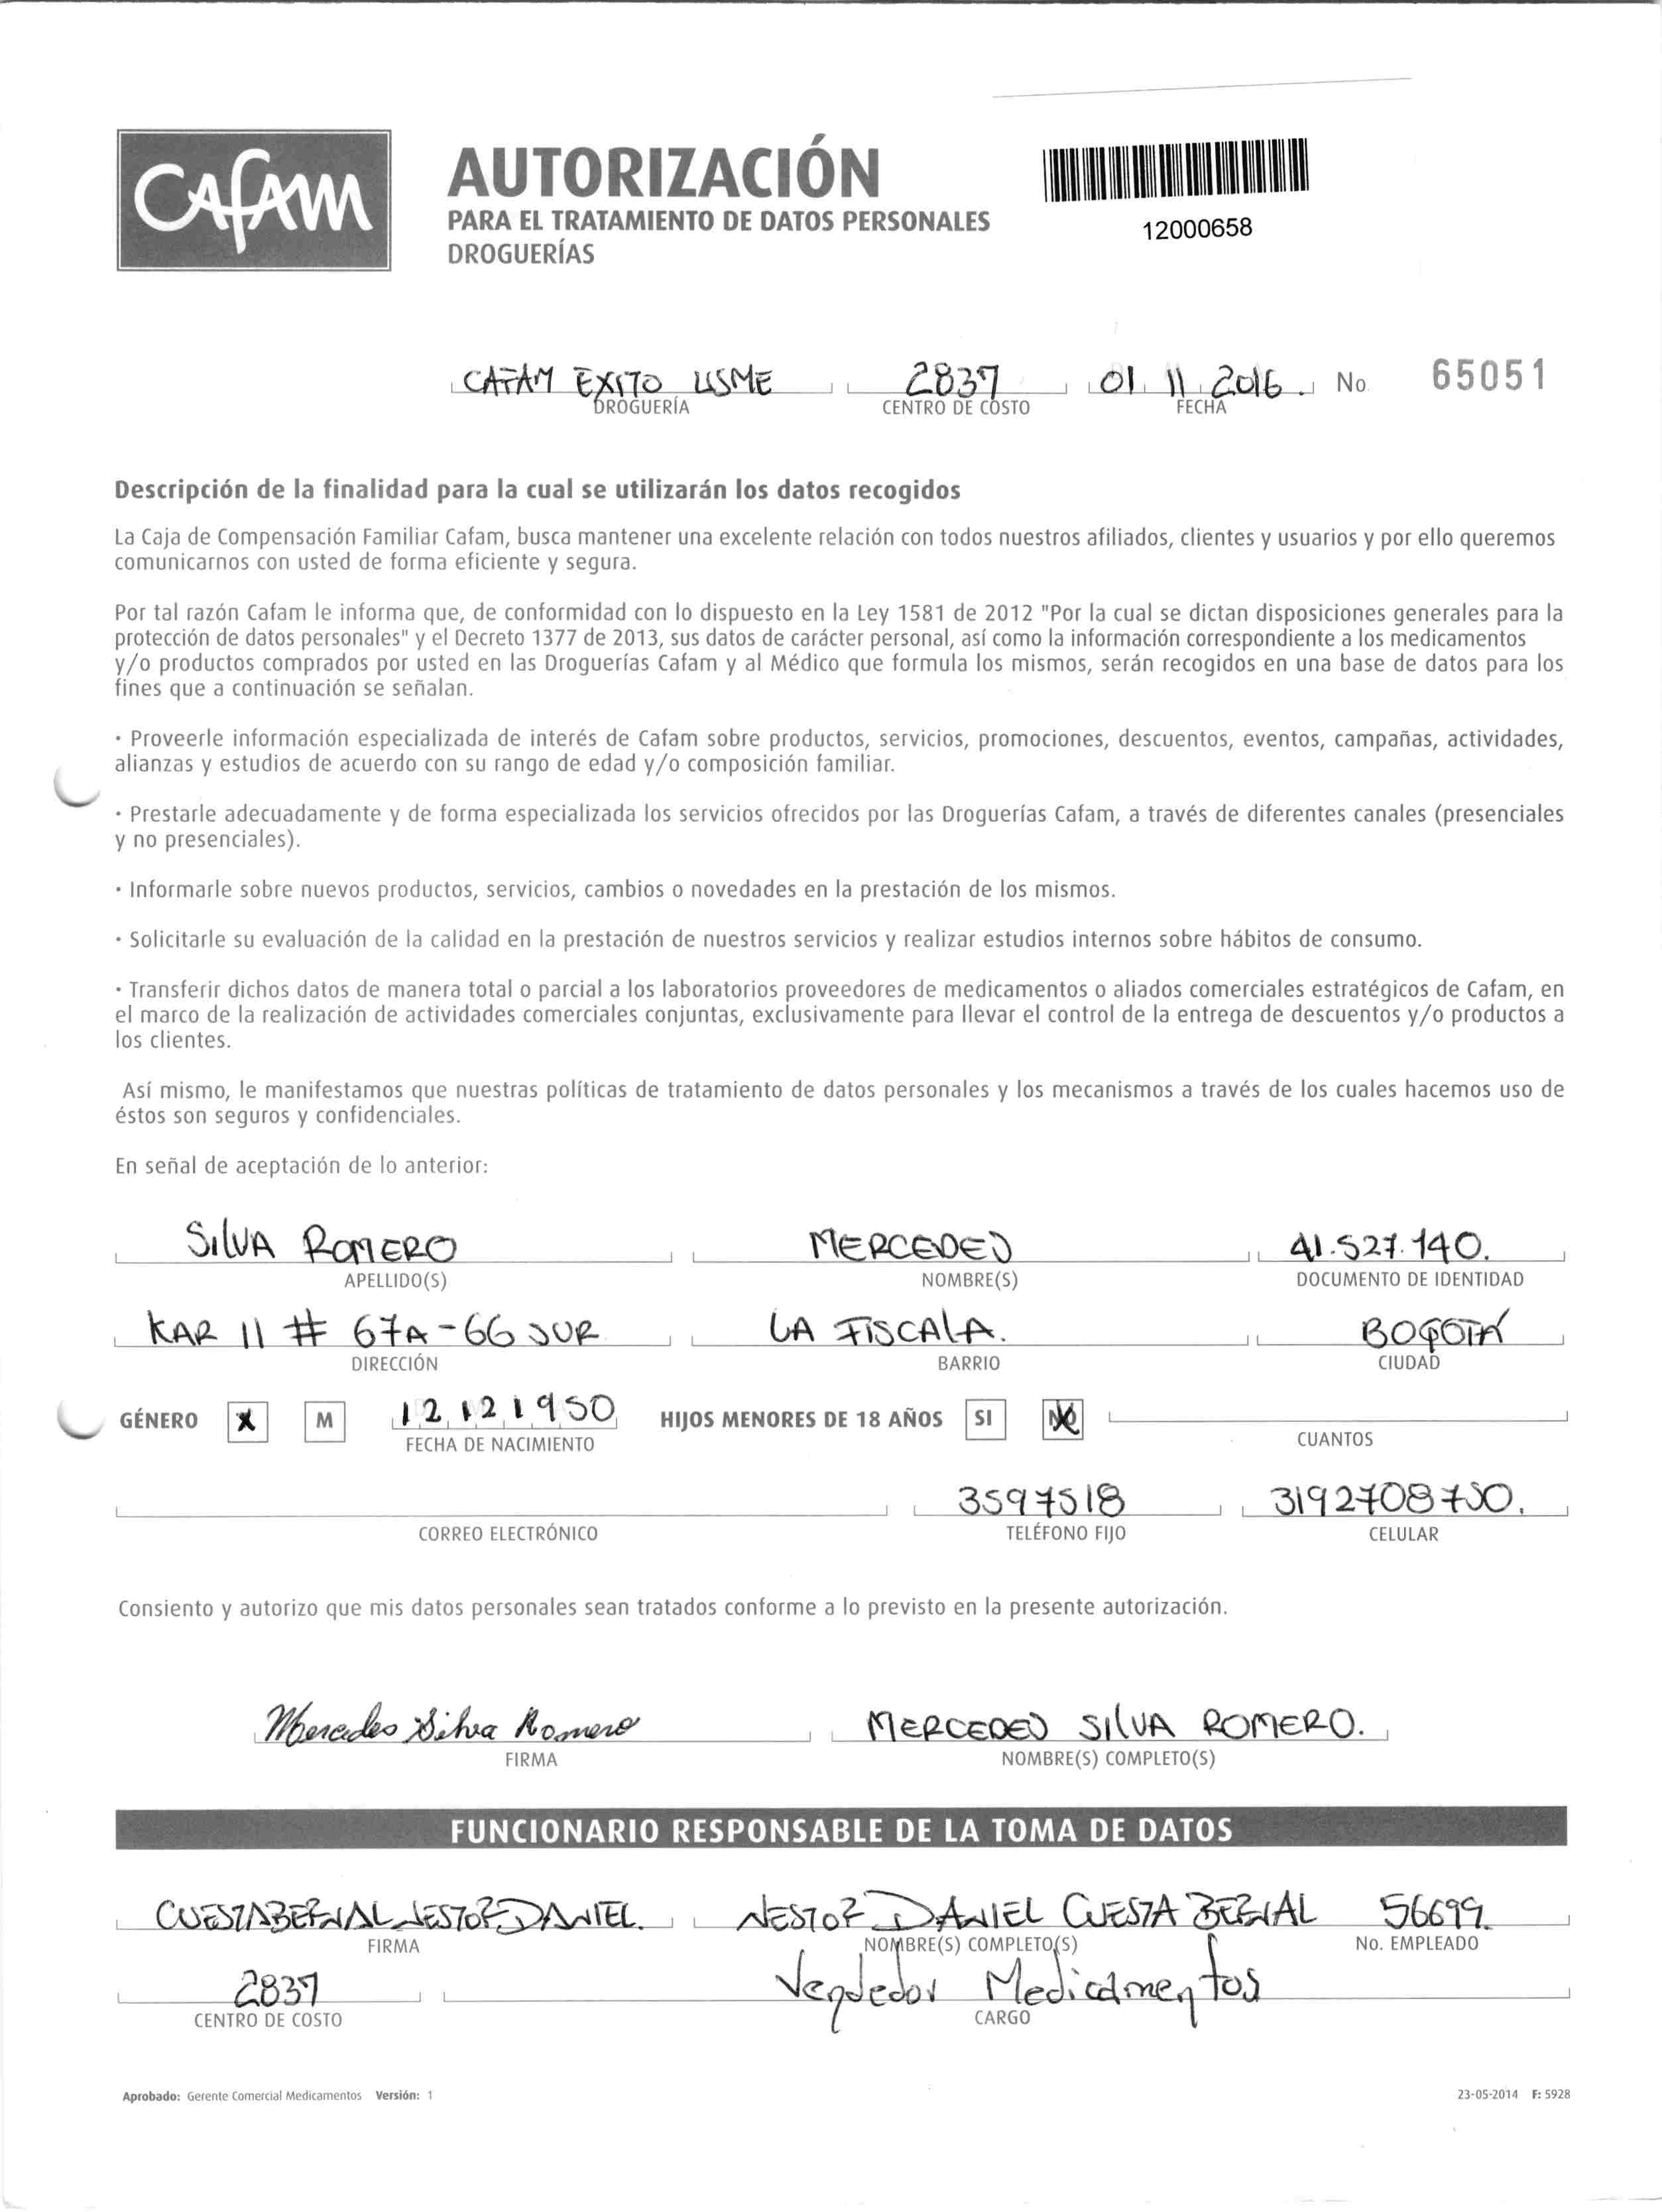 CAFAM
AUTORIZACIÓN
PARA EL TRATAMIENTO DE DATOS PERSONALES
DROGUERÍAS
12000658
CAFAM EXITO USME 2837 01 11 2016. No 65051
DROGUERÍA CENTRO DE COSTO FECHA
Descripción de la finalidad para la cual se utilizarán los datos recogidos
La Caja de Compensación Familiar Cafam, busca mantener una excelente relación con todos nuestros afiliados, clientes y usuarios y por ello queremos
comunicarnos con usted de forma eficiente y segura.
Por tal razón Cafam le informa que, de conformidad con lo dispuesto en la Ley 1581 de 2012 "Por la cual se dictan disposiciones generales para la
protección de datos personales" y el Decreto 1377 de 2013, sus datos de carácter personal, así como la información correspondiente a los medicamentos
y/o productos comprados por usted en las Droguerías Cafam y al Médico que formula los mismos, serán recogidos en una base de datos para los
fines que a continuación se señalan.
· Proveerle información especializada de interés de Cafam sobre productos, servicios, promociones, descuentos, eventos, campañas, actividades,
alianzas y estudios de acuerdo con su rango de edad y/o composición familiar.
· Prestarle adecuadamente y de forma especializada los servicios ofrecidos por las Droguerías Cafam, a través de diferentes canales (presenciales
y no presenciales).
· Informarle sobre nuevos productos, servicios, cambios o novedades en la prestación de los mismos.
· Solicitarle su evaluación de la calidad en la prestación de nuestros servicios y realizar estudios internos sobre hábitos de consumo.
· Transferir dichos datos de manera total o parcial a los laboratorios proveedores de medicamentos o aliados comerciales estratégicos de Cafam, en
el marco de la realización de actividades comerciales conjuntas, exclusivamente para llevar el control de la entrega de descuentos y/o productos a
los clientes.
Así mismo, le manifestamos que nuestras políticas de tratamiento de datos personales y los mecanismos a través de los cuales hacemos uso de
éstos son seguros y confidenciales.
En señal de aceptación de lo anterior:
SILVA ROMERO MERCEDES 41.527.140.
APELLIDO(S) NOMBRE(S) DOCUMENTO DE IDENTIDAD
KAR 11 # 67A-66 SUR LA FISCALA. BOGOTÁ
DIRECCIÓN BARRIO CIUDAD
GÉNERO X M 12 12 1950 HIJOS MENORES DE 18 AÑOS SI NO
FECHA DE NACIMIENTO CUANTOS
3597518 3192708750.
CORREO ELECTRÓNICO TELÉFONO FIJO CELULAR
Consiento y autorizo que mis datos personales sean tratados conforme a lo previsto en la presente autorización.
Mercedes Silva Romero MERCEDES SILVA ROMERO.
FIRMA NOMBRE(S) COMPLETO(S)
FUNCIONARIO RESPONSABLE DE LA TOMA DE DATOS
CUESTA BERNAL NESTOR DANIEL. NESTOR DANIEL CUESTA BERNAL 56699.
FIRMA NOMBRE(S) COMPLETO(S) No. EMPLEADO
2837 Vendedor Medicamentos
CENTRO DE COSTO CARGO
Aprobado: Gerente Comercial Medicamentos Versión: 1 23-05-2014 F: 5928